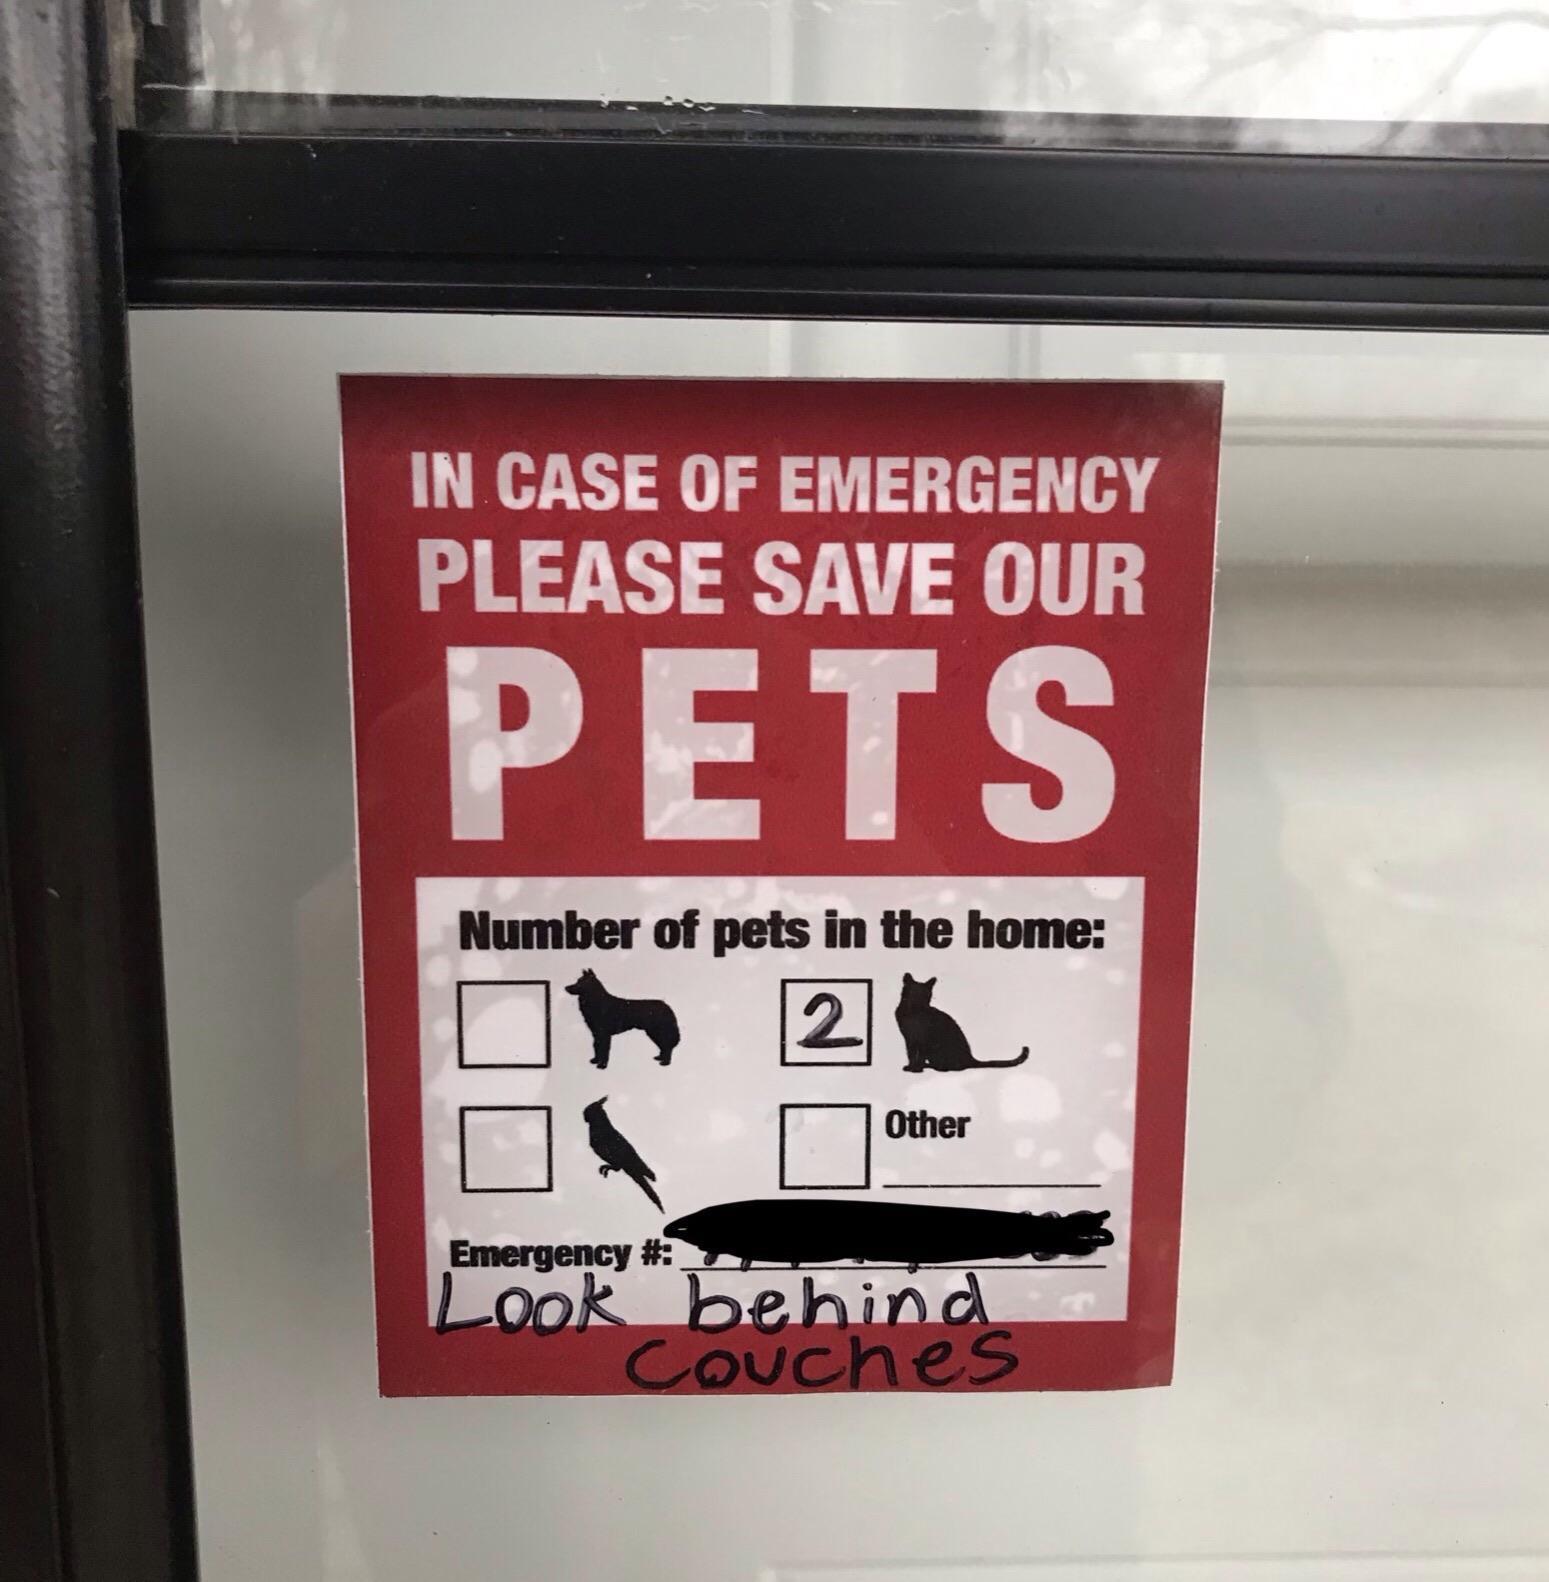 IN CASE OF EMERGENCY
PLEASE SAVE OUR
PETS
Number of pets in the home:
2
Other
Emergency #:
Look behind
couches